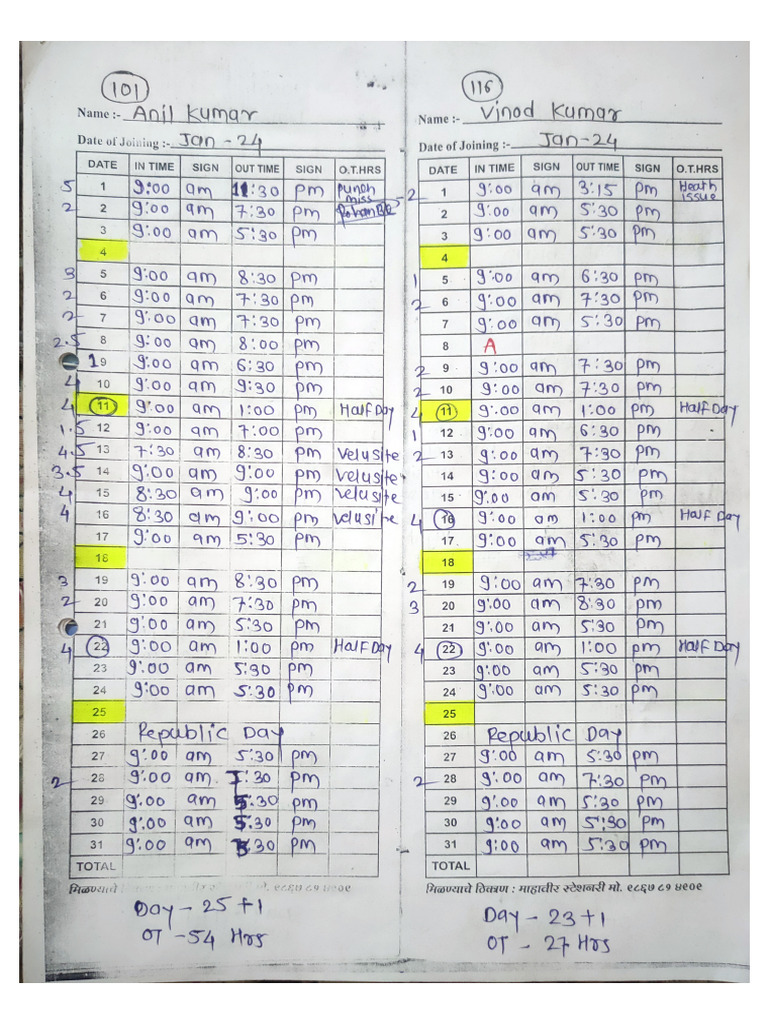 101
Name :- Anil Kumar
Date of Joining :- Jan - 24
DATE IN TIME SIGN OUT TIME SIGN O.T.HRS
5 1 9:00 am 11:30 pm Punch miss
2 2 9:00 am 7:30 pm
3 9:00 am 5:30 pm
4
3 5 9:00 am 8:30 pm
2 6 9:00 am 7:30 pm
2 7 9:00 am 7:30 pm
2.5 8 9:00 am 8:00 pm
1 9 9:00 am 6:30 pm
4 10 9:00 am 9:30 pm
4 11 9:00 am 1:00 pm Half Day
1.5 12 9:00 am 7:00 pm
4.5 13 7:30 am 8:30 pm Velusite
3.5 14 9:00 am 9:00 pm Velusite
4 15 8:30 am 9:00 pm Velusite
4 16 8:30 am 9:00 pm Velusite
17 9:00 am 5:30 pm
18
3 19 9:00 am 8:30 pm
2 20 9:00 am 7:30 pm
21 9:00 am 5:30 pm
4 22 9:00 am 1:00 pm Half Day
23 9:00 am 5:30 pm
24 9:00 am 5:30 pm
25
26 Republic Day
27 9:00 am 5:30 pm
2 28 9:00 am 7:30 pm
29 9:00 am 5:30 pm
30 9:00 am 5:30 pm
31 9:00 am 5:30 pm
TOTAL
मिळण्याचे मो. ९८६७ ८१ ४९०९
Day - 25 + 1
OT - 54 Hrs
116
Name :- Vinod Kumar
Date of Joining :- Jan-24
DATE IN TIME SIGN OUT TIME SIGN O.T.HRS
-2 1 9:00 am 3:15 pm Heath issue
2 9:00 am 5:30 pm
3 9:00 am 5:30 pm
4
1 5 9:00 am 6:30 pm
2 6 9:00 am 7:30 pm
7 9:00 am 5:30 pm
8 A
2 9 9:00 am 7:30 pm
2 10 9:00 am 7:30 pm
4 11 9:00 am 1:00 pm Half Day
1 12 9:00 am 6:30 pm
2 13 9:00 am 7:30 pm
14 9:00 am 5:30 pm
15 9:00 am 5:30 pm
4 16 9:00 am 1:00 pm Half Day
17 9:00 am 5:30 pm
18
2 19 9:00 am 7:30 pm
3 20 9:00 am 8:30 pm
21 9:00 am 5:30 pm
4 22 9:00 am 1:00 pm Half Day
23 9:00 am 5:30 pm
24 9:00 am 5:30 pm
25
26 Republic Day
27 9:00 am 5:30 pm
2 28 9:00 am 7:30 pm
29 9:00 am 5:30 pm
30 9:00 am 5:30 pm
31 9:00 am 5:30 pm
TOTAL
मिळण्याचे ठिकाण : माहावीर स्टेशनरी मो. ९८६७ ८१ ४९०९
Day - 23 + 1
OT - 27 Hrs